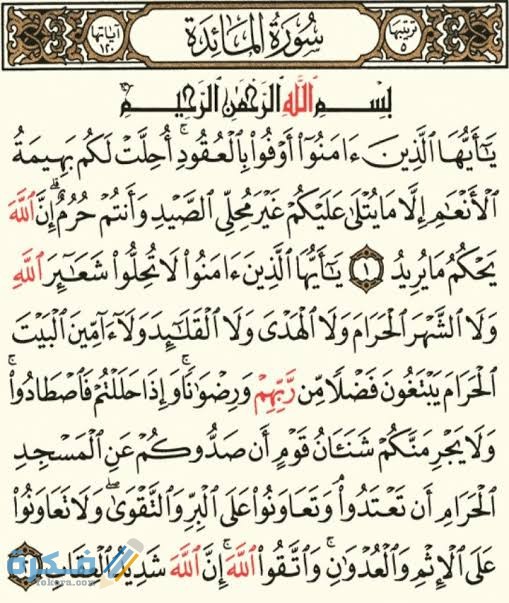 ترتيبها ٥
سُورَةُ المَائِدَةِ
آياتها ١٢٠
بِسْمِ اللَّهِ الرَّحْمَٰنِ الرَّحِيمِ
يَـٰٓأَيُّهَا الَّذِينَ ءَامَنُوٓا۟ أَوْفُوا۟ بِالْعُقُودِ ۚ أُحِلَّتْ لَكُم بَهِيمَةُ
الْأَنْعَـٰمِ إِلَّا مَا يُتْلَىٰ عَلَيْكُمْ غَيْرَ مُحِلِّى الصَّيْدِ وَأَنتُمْ حُرُمٌ ۗ إِنَّ اللَّهَ
يَحْكُمُ مَا يُرِيدُ ١ يَـٰٓأَيُّهَا الَّذِينَ ءَامَنُوا۟ لَا تُحِلُّوا۟ شَعَـٰٓئِرَ اللَّهِ
وَلَا الشَّهْرَ الْحَرَامَ وَلَا الْهَدْىَ وَلَا الْقَلَـٰٓئِدَ وَلَآ ءَآمِّينَ الْبَيْتَ
الْحَرَامَ يَبْتَغُونَ فَضْلًا مِّن رَّبِّهِمْ وَرِضْوَٰنًا ۚ وَإِذَا حَلَلْتُمْ فَاصْطَادُوا۟ ۚ
وَلَا يَجْرِمَنَّكُمْ شَنَـَٔانُ قَوْمٍ أَن صَدُّوكُمْ عَنِ الْمَسْجِدِ
الْحَرَامِ أَن تَعْتَدُوا۟ ۘ وَتَعَاوَنُوا۟ عَلَى الْبِرِّ وَالتَّقْوَىٰ ۖ وَلَا تَعَاوَنُوا۟
عَلَى الْإِثْمِ وَالْعُدْوَٰنِ ۚ وَاتَّقُوا۟ اللَّهَ ۖ إِنَّ اللَّهَ شَدِيدُ الْعِقَابِ
فكرة
fekera.com